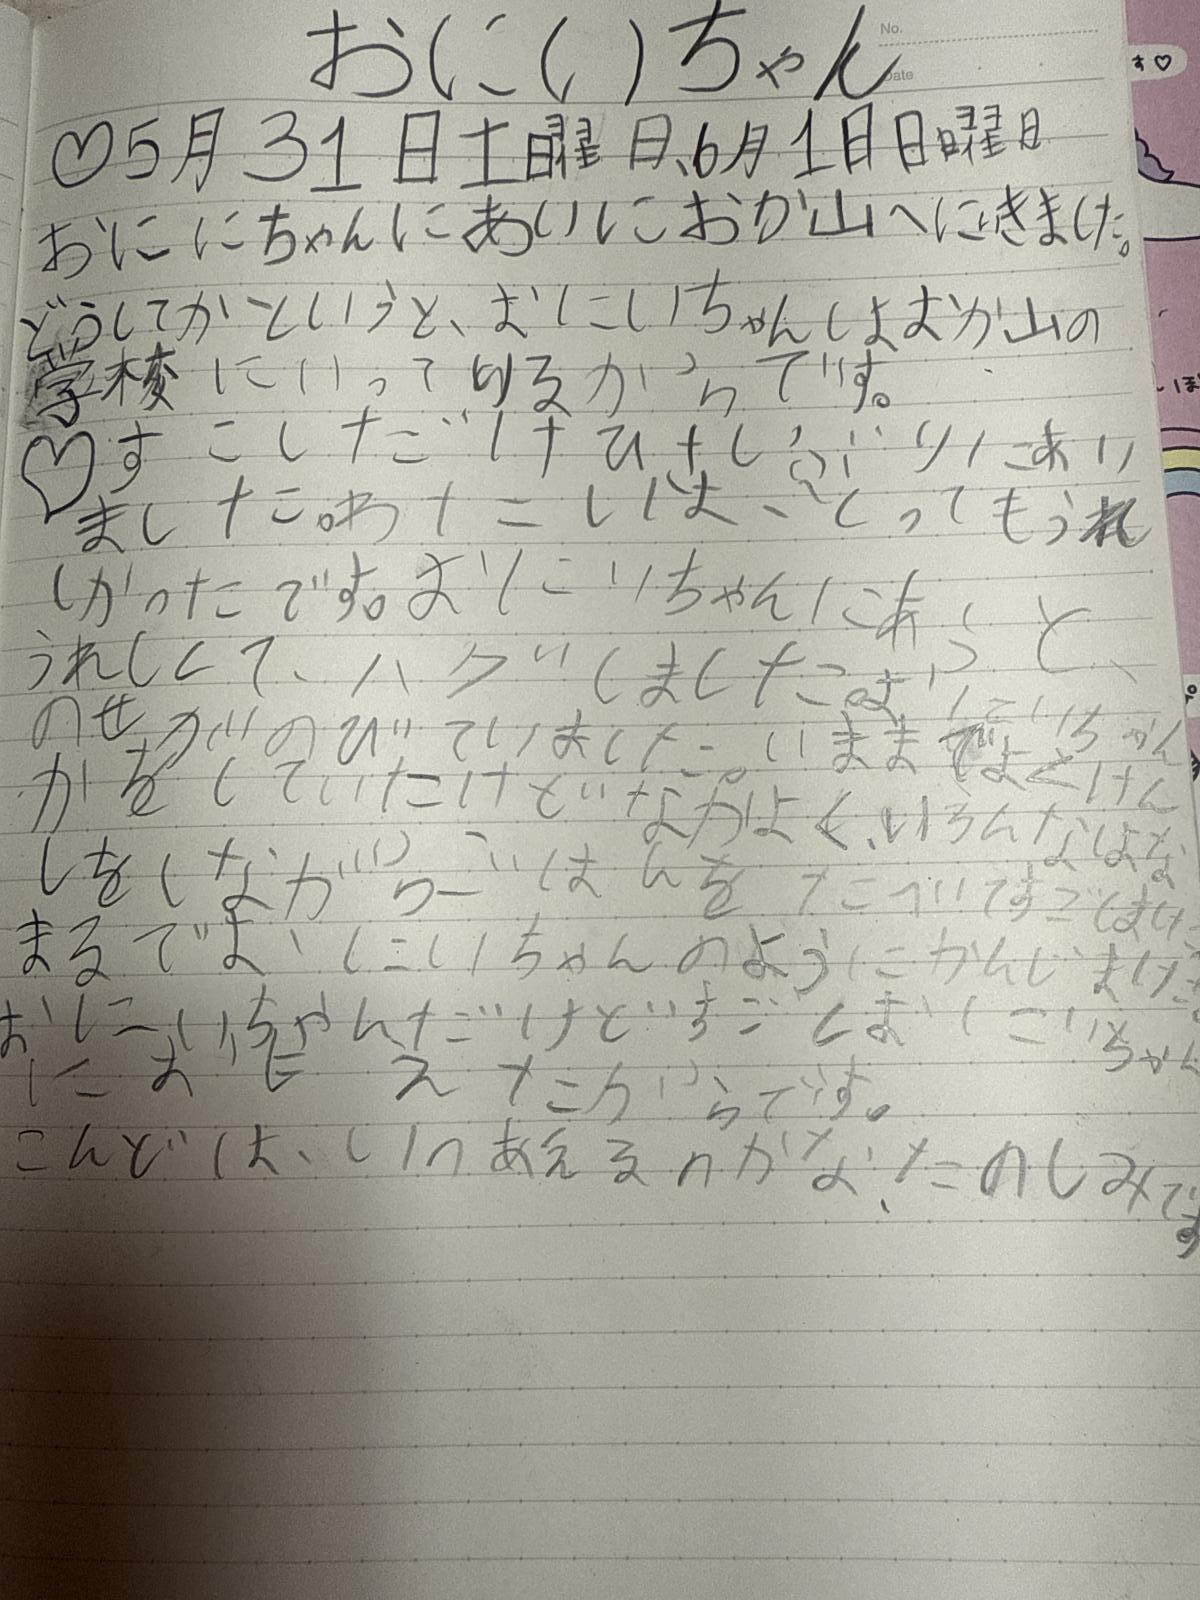 おにいちゃん
No.
Date
♡5月31日土曜日、6月1日日曜日
おににちゃんにあいにおか山へにきました。
どうしてかというと、おにいちゃんはおか山の
学校にいってりるからです。
♡すこしだけひさしぶりにあり
ました。わたしは、とってもうれ
しかったです。おにいちゃんにあうと、
うれしくて、ハグしました。おにいちゃん
のせがのびていました。いままでよくけん
かをしていたけどなかよく、いろんなはな
しをしながらごはんをたべてすご
まるでおにいちゃんのようにかんじ
おにいちゃんだけどすごくおにいちゃん
におもえたからです。
こんどは、いつあえるのかな、たのしみです